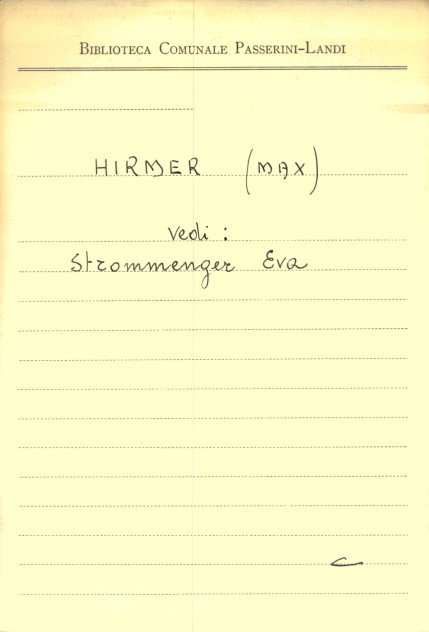 BIBLIOTECA COMUNALE PASSERINI-LANDI
HIRMER (MAX)
Vedi :
Strommenger Eva